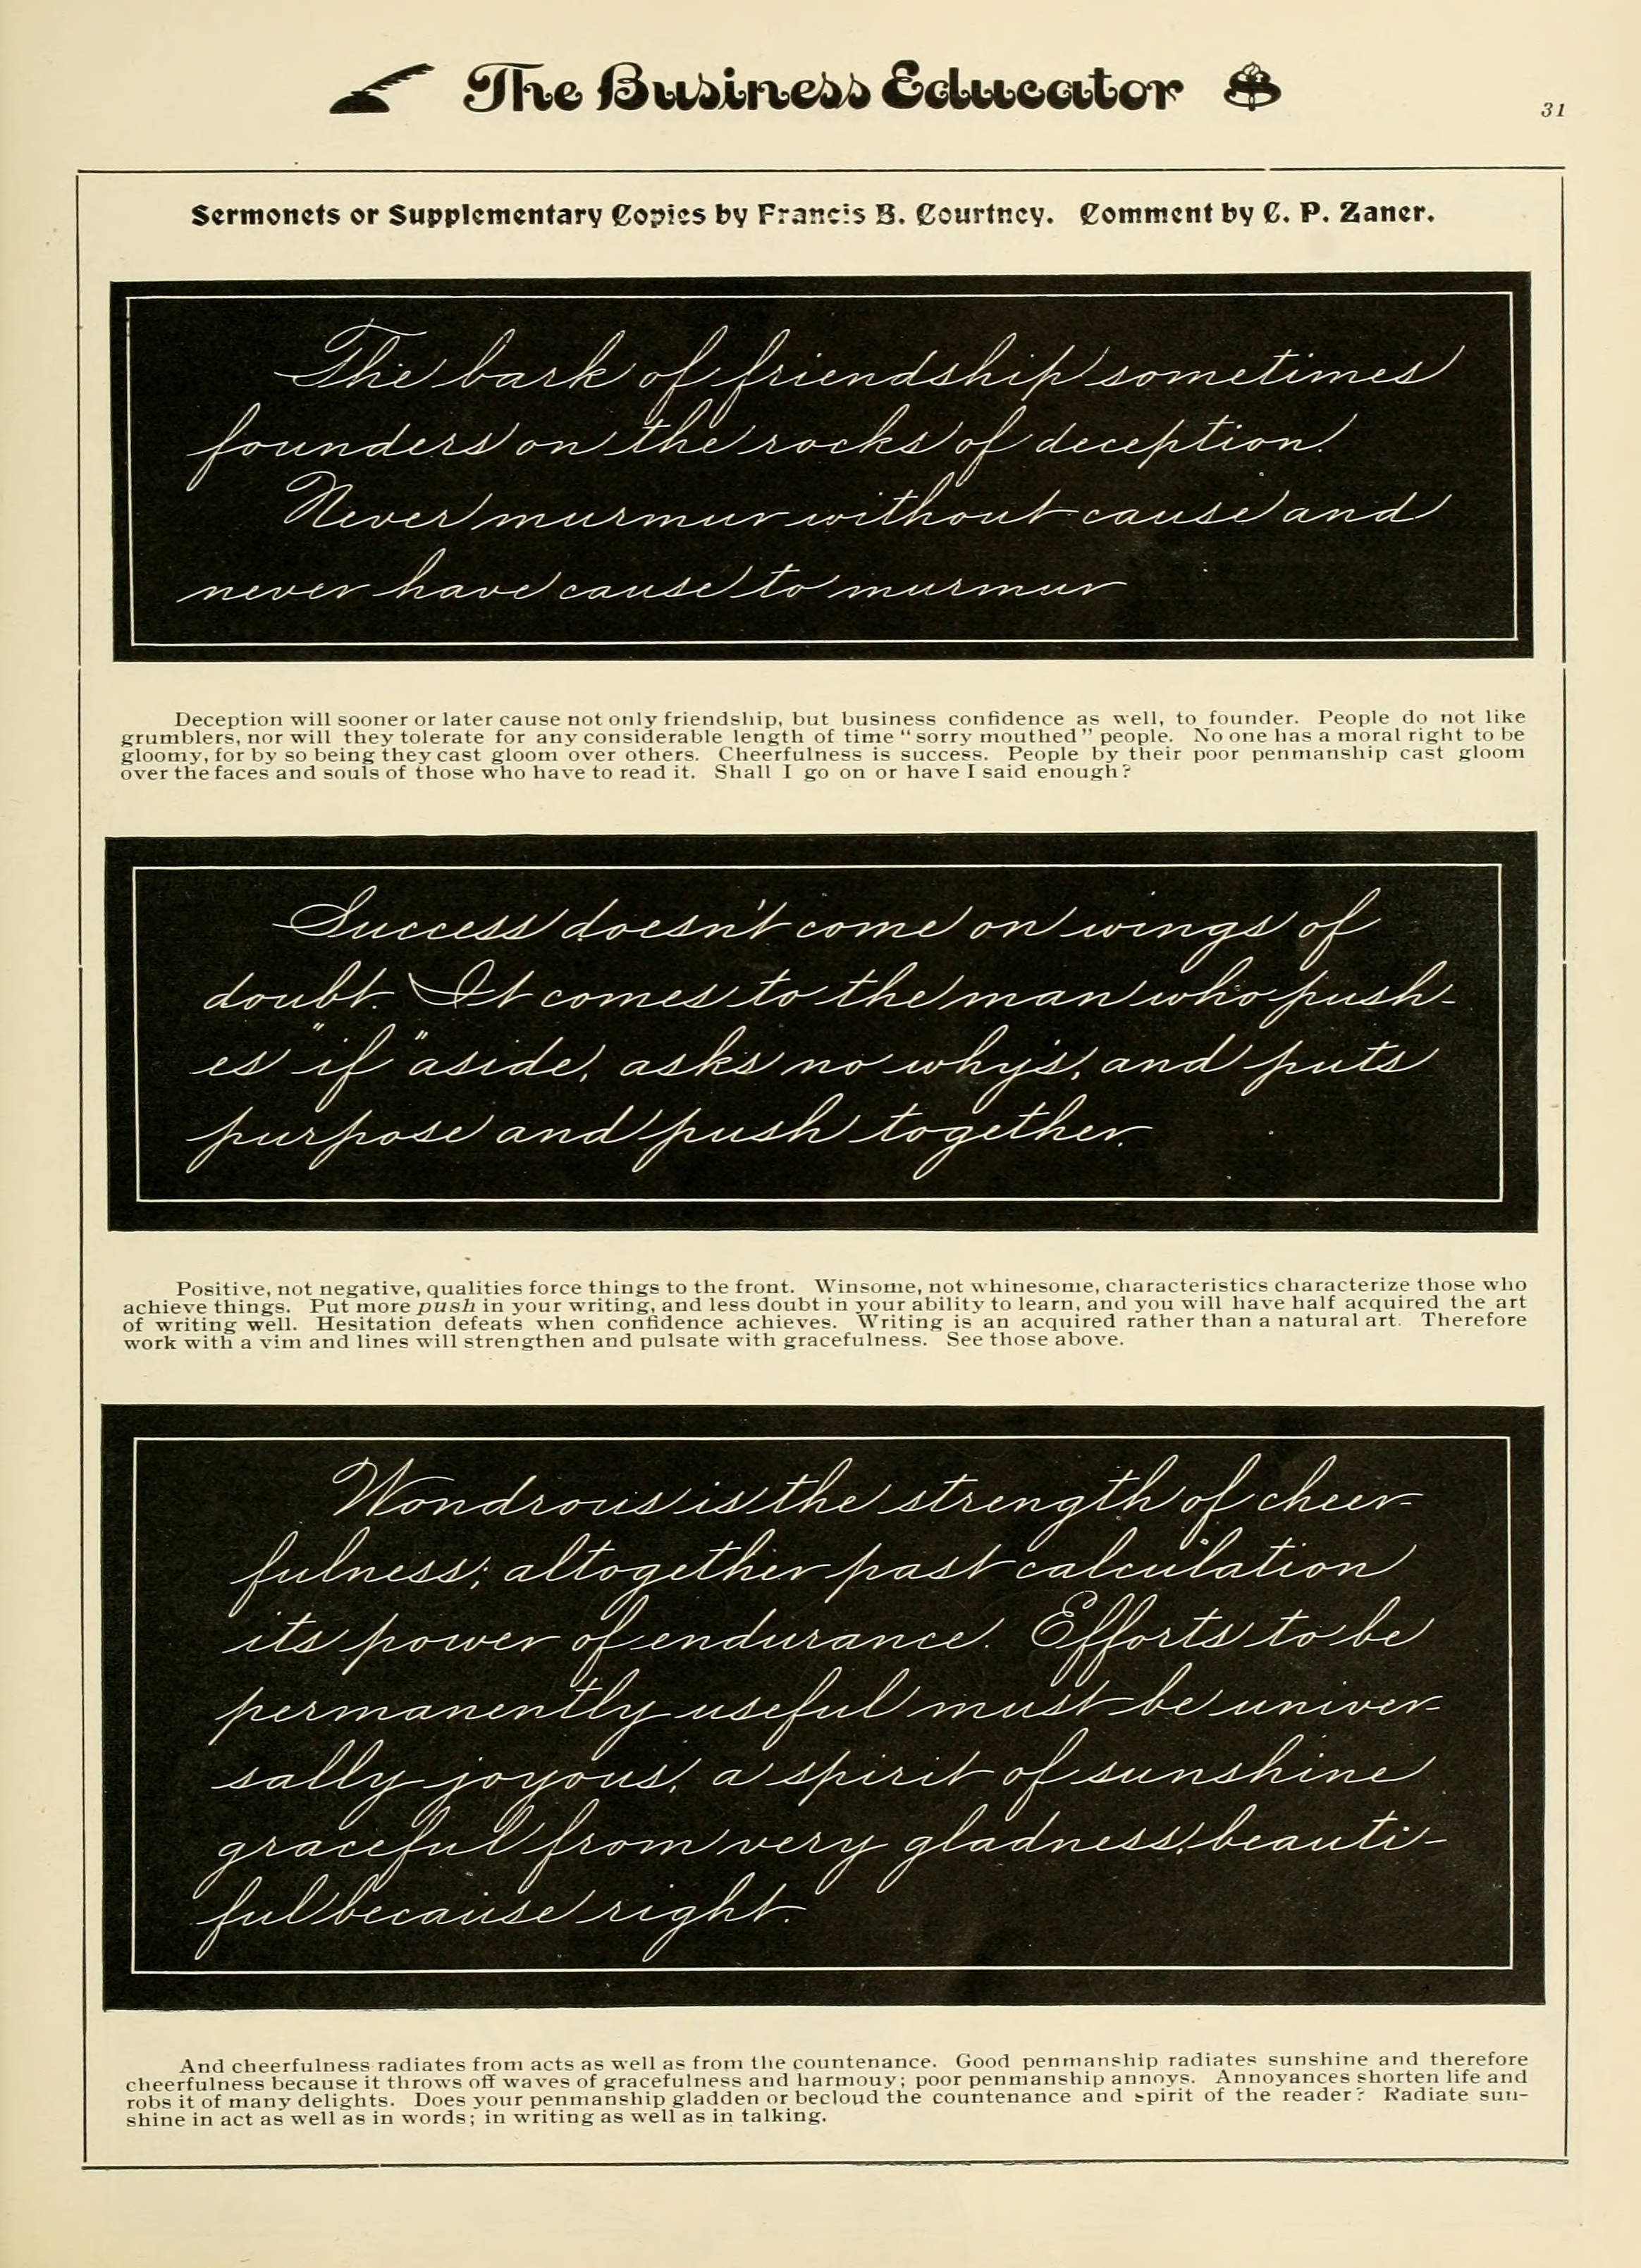 The Business Educator
31
Sermonets or Supplementary Copies by Francis B. Courtney. Comment by C. P. Zaner.
The bark of friendship sometimes
founders on the rocks of deception.
Never murmur without cause and
never have cause to murmur
Deception will sooner or later cause not only friendship, but business confidence as well, to founder. People do not like
grumblers, nor will they tolerate for any considerable length of time "sorry mouthed" people. No one has a moral right to be
gloomy, for by so being they cast gloom over others. Cheerfulness is success. People by their poor penmanship cast gloom
over the faces and souls of those who have to read it. Shall I go on or have I said enough?
Success doesn't come on wings of
doubt. It comes to the man who push-
es "if" aside, asks no why's, and puts
purpose and push together.
Positive, not negative, qualities force things to the front. Winsome, not whinesome, characteristics characterize those who
achieve things. Put more push in your writing, and less doubt in your ability to learn, and you will have half acquired the art
of writing well. Hesitation defeats when confidence achieves. Writing is an acquired rather than a natural art. Therefore
work with a vim and lines will strengthen and pulsate with gracefulness. See those above.
Wondrous is the strength of cheer-
fulness; altogether past calculation
its power of endurance. Efforts to be
permanently useful must be univer-
sally joyous, a spirit of sunshine
graceful from very gladness, beauti-
ful because right.
And cheerfulness radiates from acts as well as from the countenance. Good penmanship radiates sunshine and therefore
cheerfulness because it throws off waves of gracefulness and harmouy; poor penmanship annoys. Annoyances shorten life and
robs it of many delights. Does your penmanship gladden or becloud the countenance and spirit of the reader? Radiate sun-
shine in act as well as in words; in writing as well as in talking.